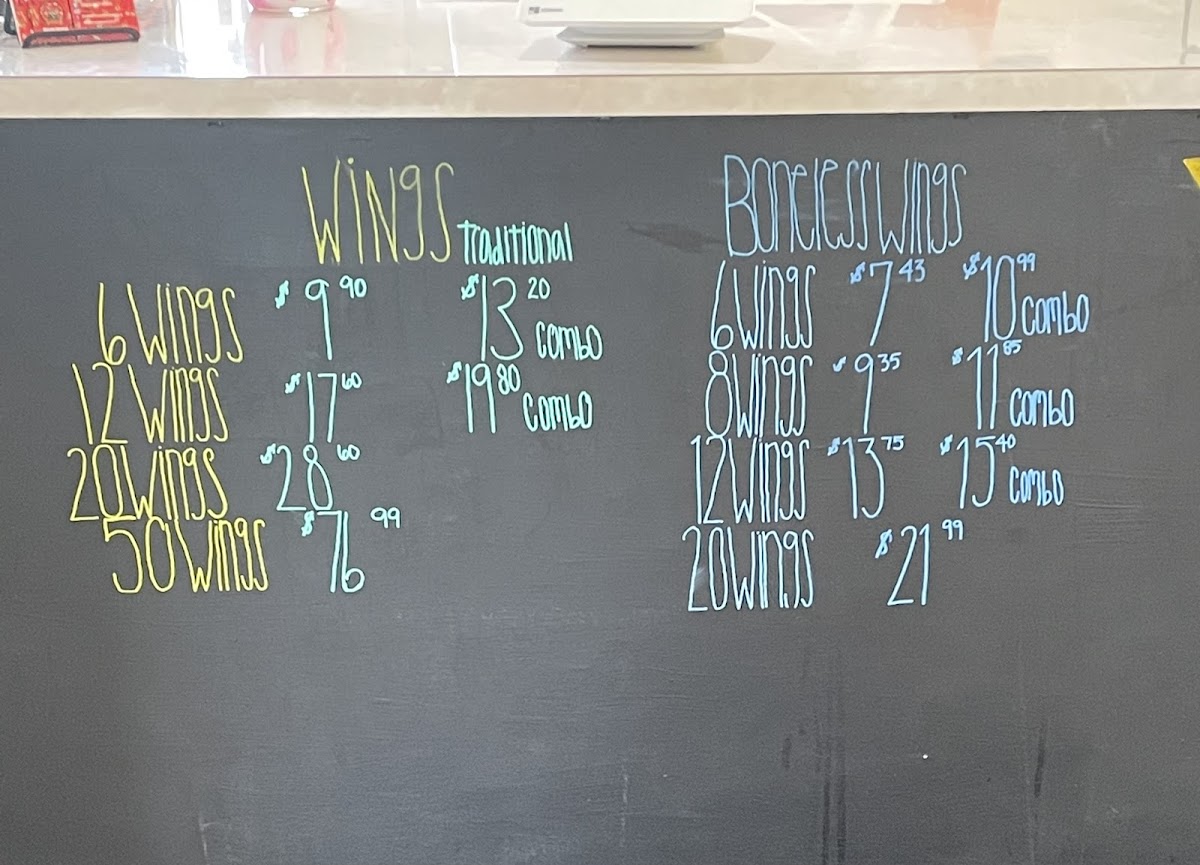 WiNgs Traditional
6 Wings $9.90 $13.20 combo
12 Wings $17.60 $19.80 combo
20 Wings $28.60
50 Wings $76.99
Boneless Wings
6 Wings $7.43 $10.99 combo
8 Wings $9.35 $11.85 combo
12 Wings $13.75 $15.40 combo
20 Wings $21.99